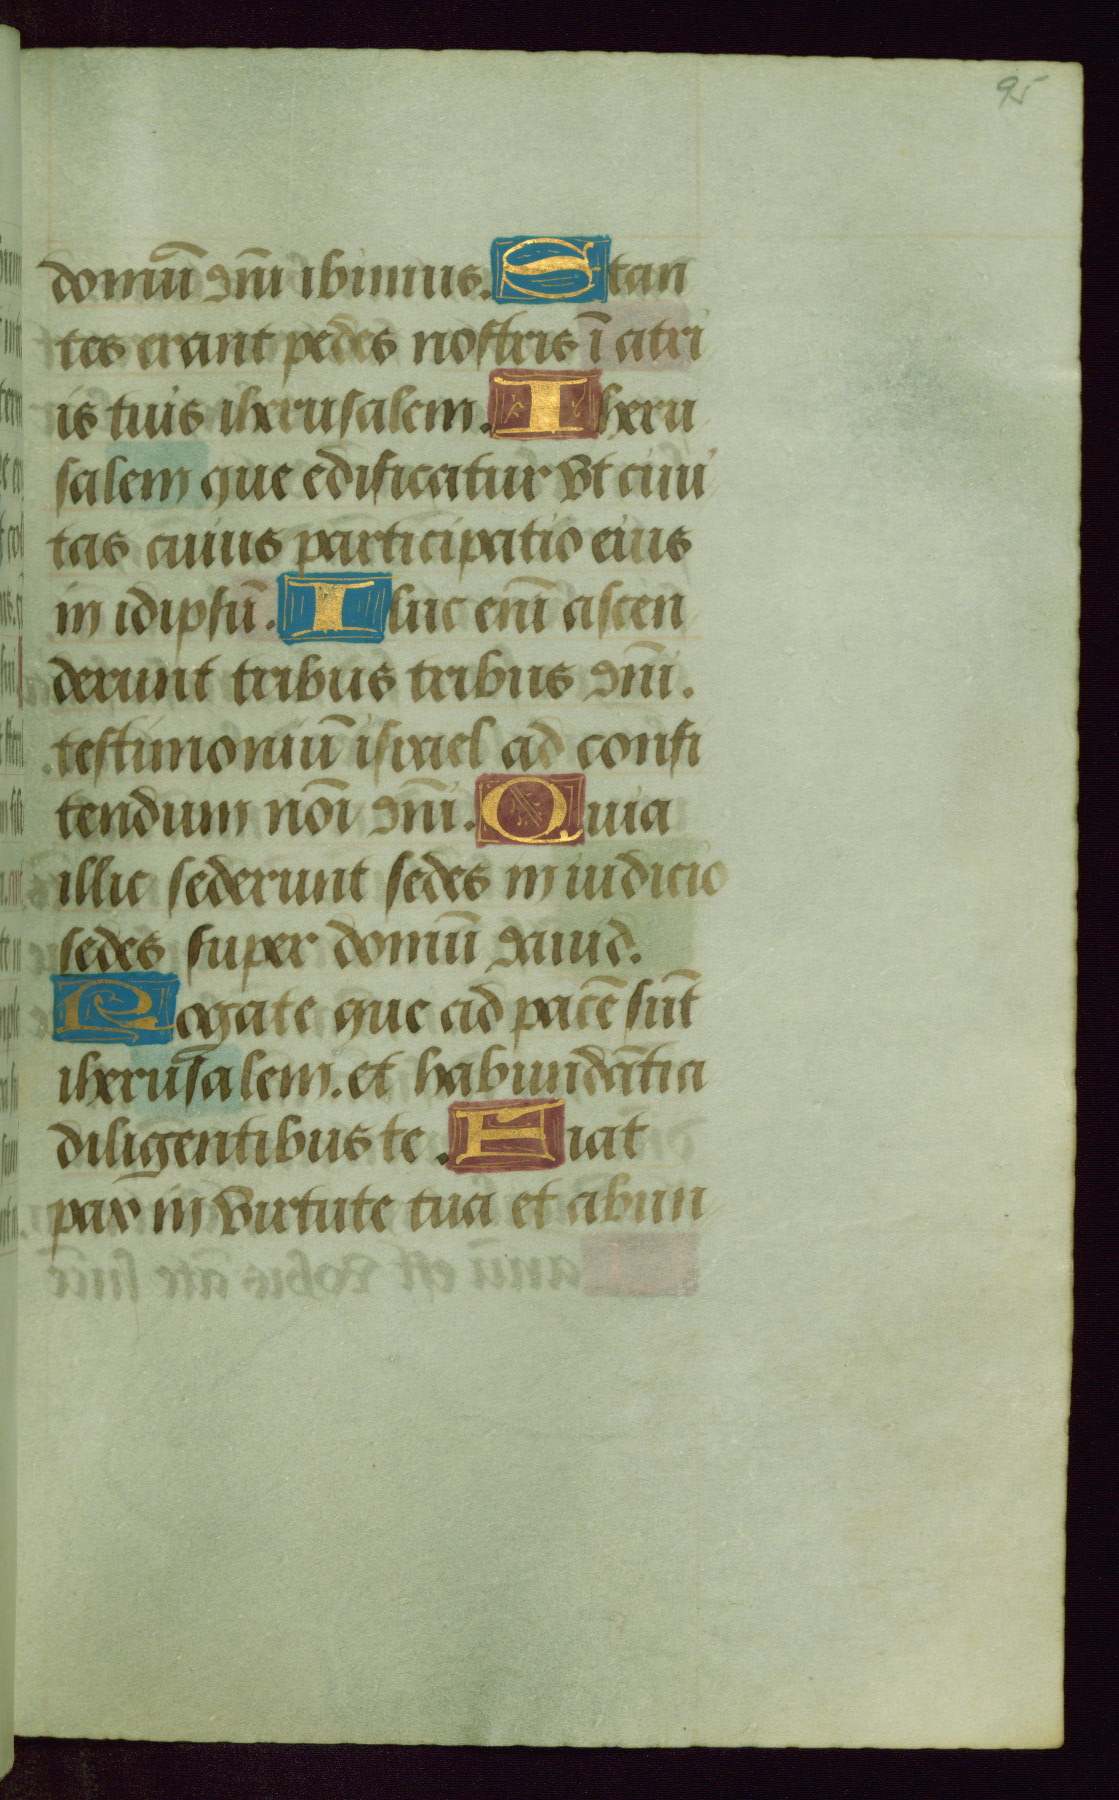 95
domū dñi ibimus. Stan
tes erant pedes nostris ī atri
is tuis iherusalem. Iheru
salem que edificatur vt ciui
tas cuius participatio eius
in idipsū. Illuc enī ascen
derunt tribus tribus dñi.
testimoniū israel ad confi
tendum noī dñi. Quia
illic sederunt sedes in iudicio
sedes super domū dauid.
Rogate que ad pacē sūt
iherusalem. et habundātia
diligentibus te. Fiat
pax in virtute tua et abun